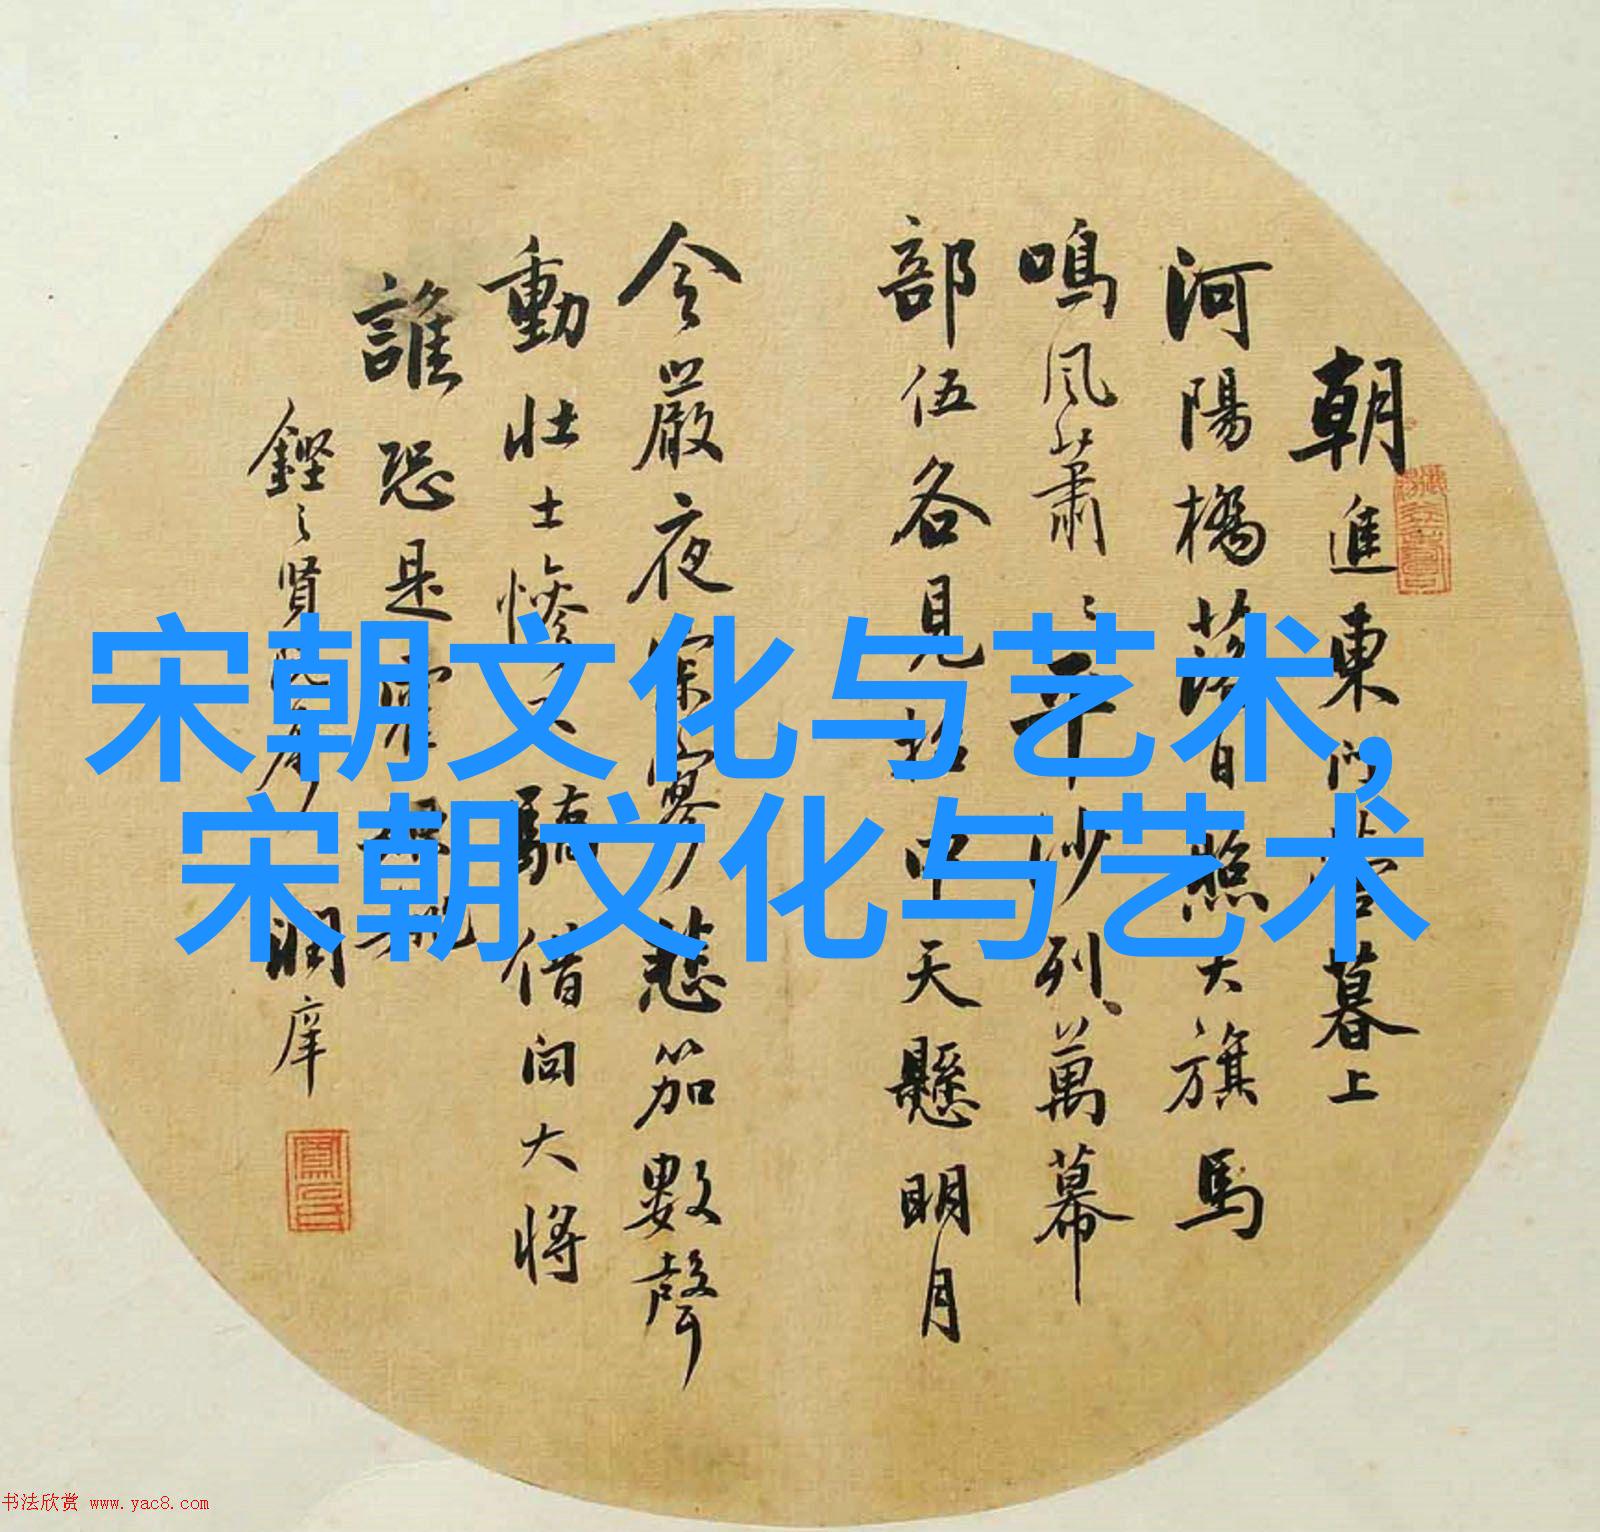 朝進東門營暮上
河陽橋落日照大旗馬
鳴風蕭〻平沙列萬幕
部伍各見招中天懸明月
令嚴夜寥悲笳數聲
動壯士慘不驕借问大將
誰恐是霍
鏗之賢
潤庠
宋朝文化与艺术,
宋朝文化与艺术
书法欣赏 www.yac8.com